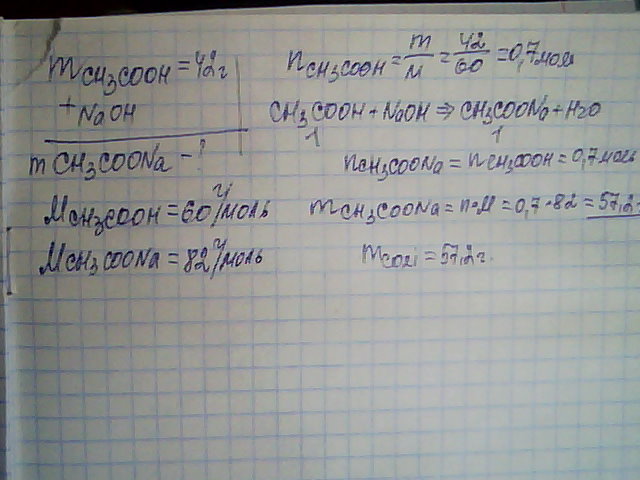 mCH₃COOH = 42г
+ NaOH
mCH₃COONa - ?
MCH₃COOH = 60 г/моль
MCH₃COONa = 82 г/моль
nCH₃COOH = m/M = 42/60 = 0,7 моль
CH₃COOH + NaOH => CH₃COONa + H₂O
1 1
nCH₃COONa = nCH₃COOH = 0,7 моль
mCH₃COONa = n·M = 0,7·82 = 57,2г
mсоли = 57,2г.